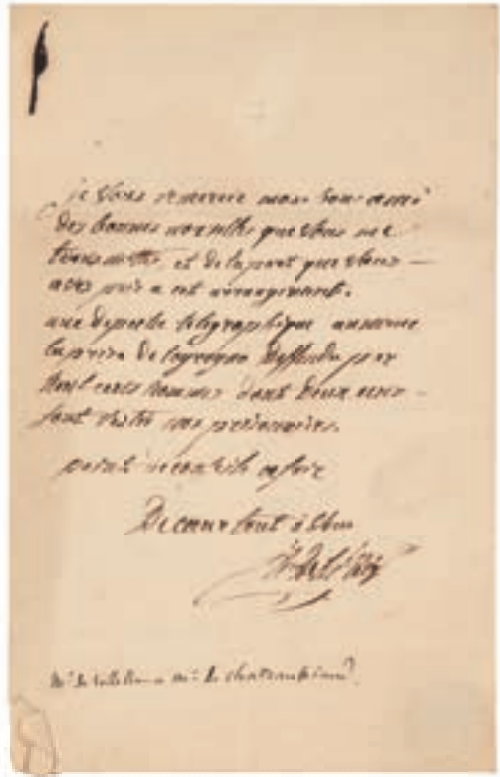 je vous remercie mon bon ami
des bonnes nouvelles que vous me
transmettes, et de la part que vous
aves pris a cet arrangement.
une depeche telegraphique annonce
la prise de logrogno deffendu par
huit cents hommes dont deux cens
sont restés nos prisonniers.
point de conseil ce soir
De cœur tout à vous
Jh de Villèle
Mr. de Villèle a Mr. de Chateaubriand